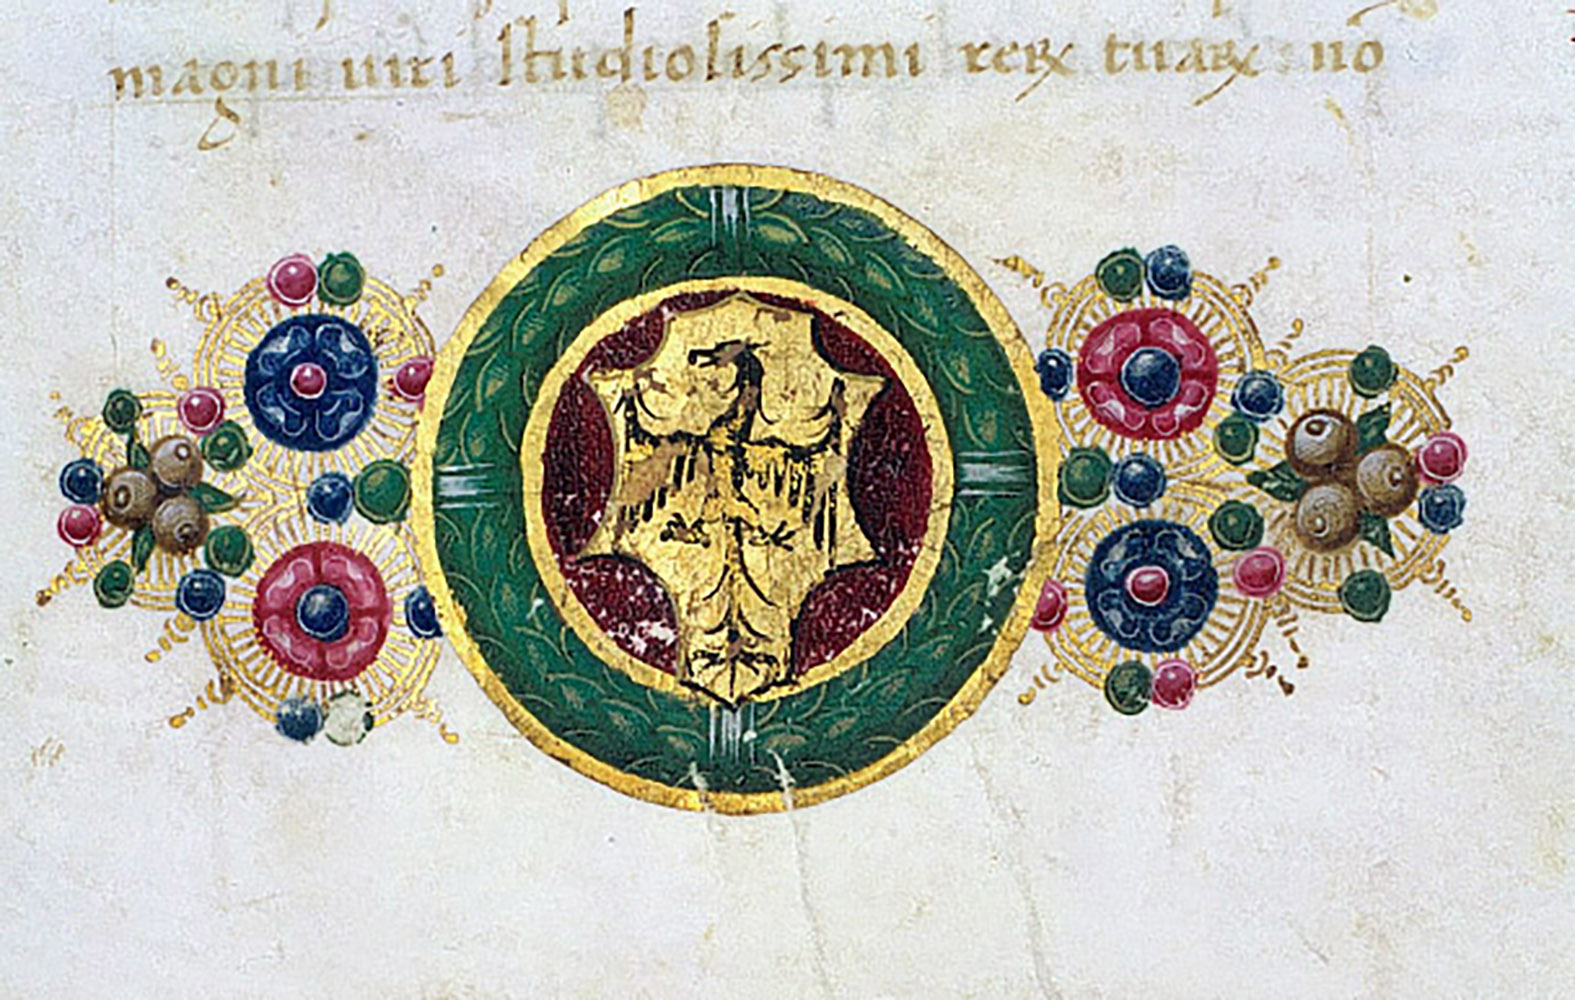 magni uiri studiosissimi reꝝ tuaꝝ nō